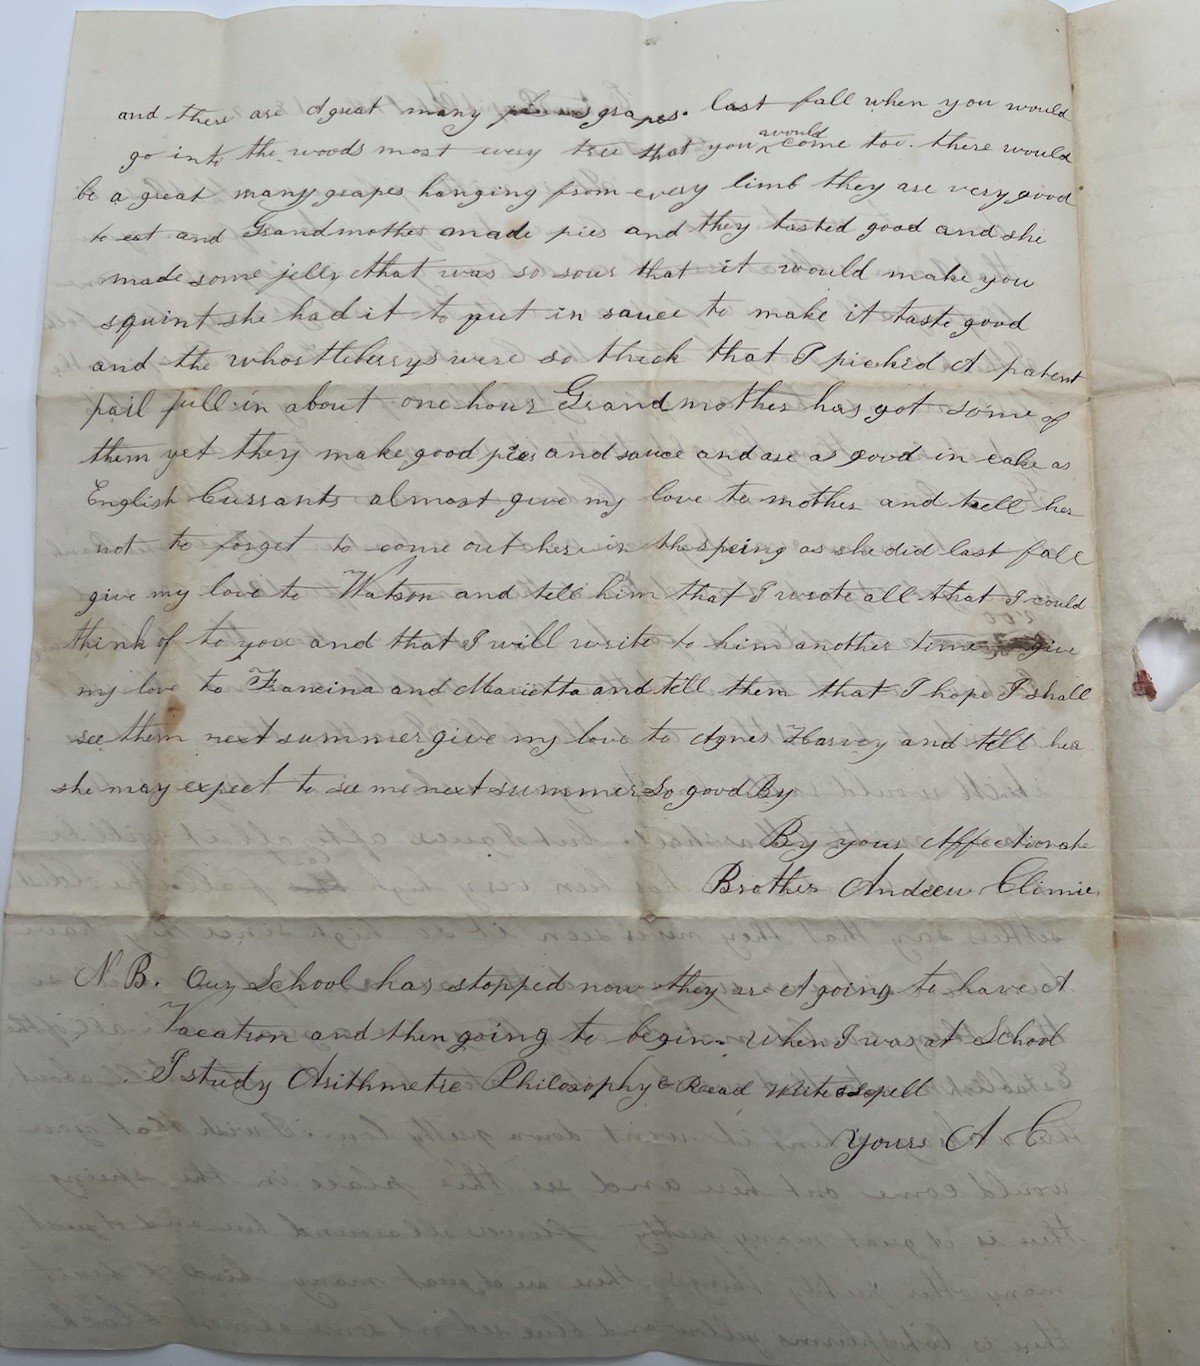 and there are A great many grapes. last fall when you would
go into the woods most every tree that you would come too. there would
be a great many grapes hanging from every limb they are very good
to eat and Grandmother made pies and they tasted good and she
made some jelly that was so sour that it would make you
squint she had it to put in sauce to make it taste good
and the whostleberrys were so thick that I picked A patent
pail full in about one hour Grandmother has got some of
them yet they make good pies and sauce and are as good in cake as
English Currants almost give my love to mother and tell her
not to forget to come out here in the spring as she did last fall
give my love to Watson and tell him that I wrote all that I could
think of to you and that I will write to him another time give
my love to Francina and Marietta and tell them that I hope I shall
see them next summer give my love to Agnes Harvey and tell her
she may expect to see me next summer So good By
By your Affectionate
Brother Andrew Climie
N B. Our School has stopped now they are A going to have A
Vacation and then going to begin. When I was at School
I study Arithmetic Philosophy & Read Write & Spell
Yours A C